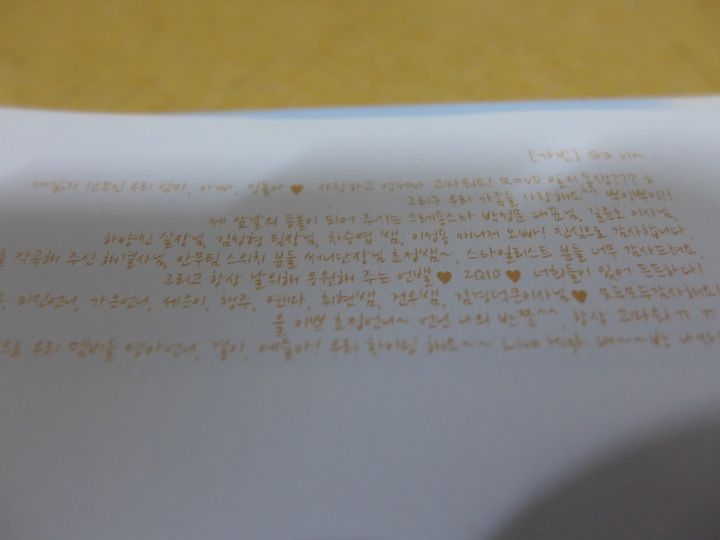 [가빈] Ga vin
제삶의 전부인 우리 엄마, 아빠, 밍돌아♥ 사랑하고 언제나 고마워요! R=VD 알지 동생???
그리구 우리 가족들 사랑해요^^ 뿌이뿌이!!!
제 앞날의 등불이 되어 주시는 크레용스타 박성훈 대표님, 길훈호 이사님,
하양진 실장님, 김성형 팀장님, 차수엽 쌤, 이성용 매니저 오빠! 진심으로 감사합니다.
작곡해 주신 해결사님, 안무팀 스위치 분들 써니단장님 효정쌤~, 스타일리스트 분들 너무 감사드려요.
그리고 항상 날위해 응원해 주는 언밸♥ 2Q10♥ 너희들이 있어 든든하다!
미진언니, 가은언니, 세은이, 행주, 연마, 최현쌤, 건우쌤, 이사님♥ 모두모두감사해요!
이쁜 효정언니~ 언닌 나의 반쪽^^, 항상 고마워 ㄲㄲ
우리 멤버들 영아언니, 결이, 예슬아! 우리 화이팅 해요~~ Live High 대~~박